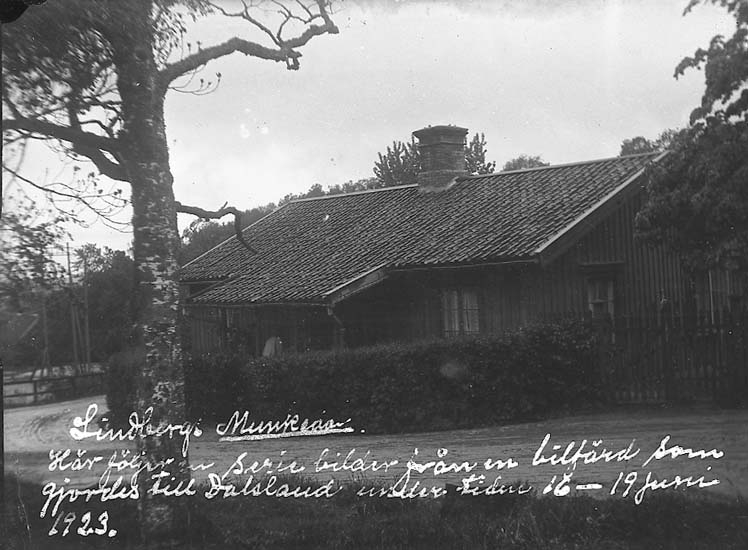 Lindbergs Munkedal.
Här följer en serie bilder från en bilfärd som
gjordes till Dalsland under tiden 16 – 19 juni
1923.